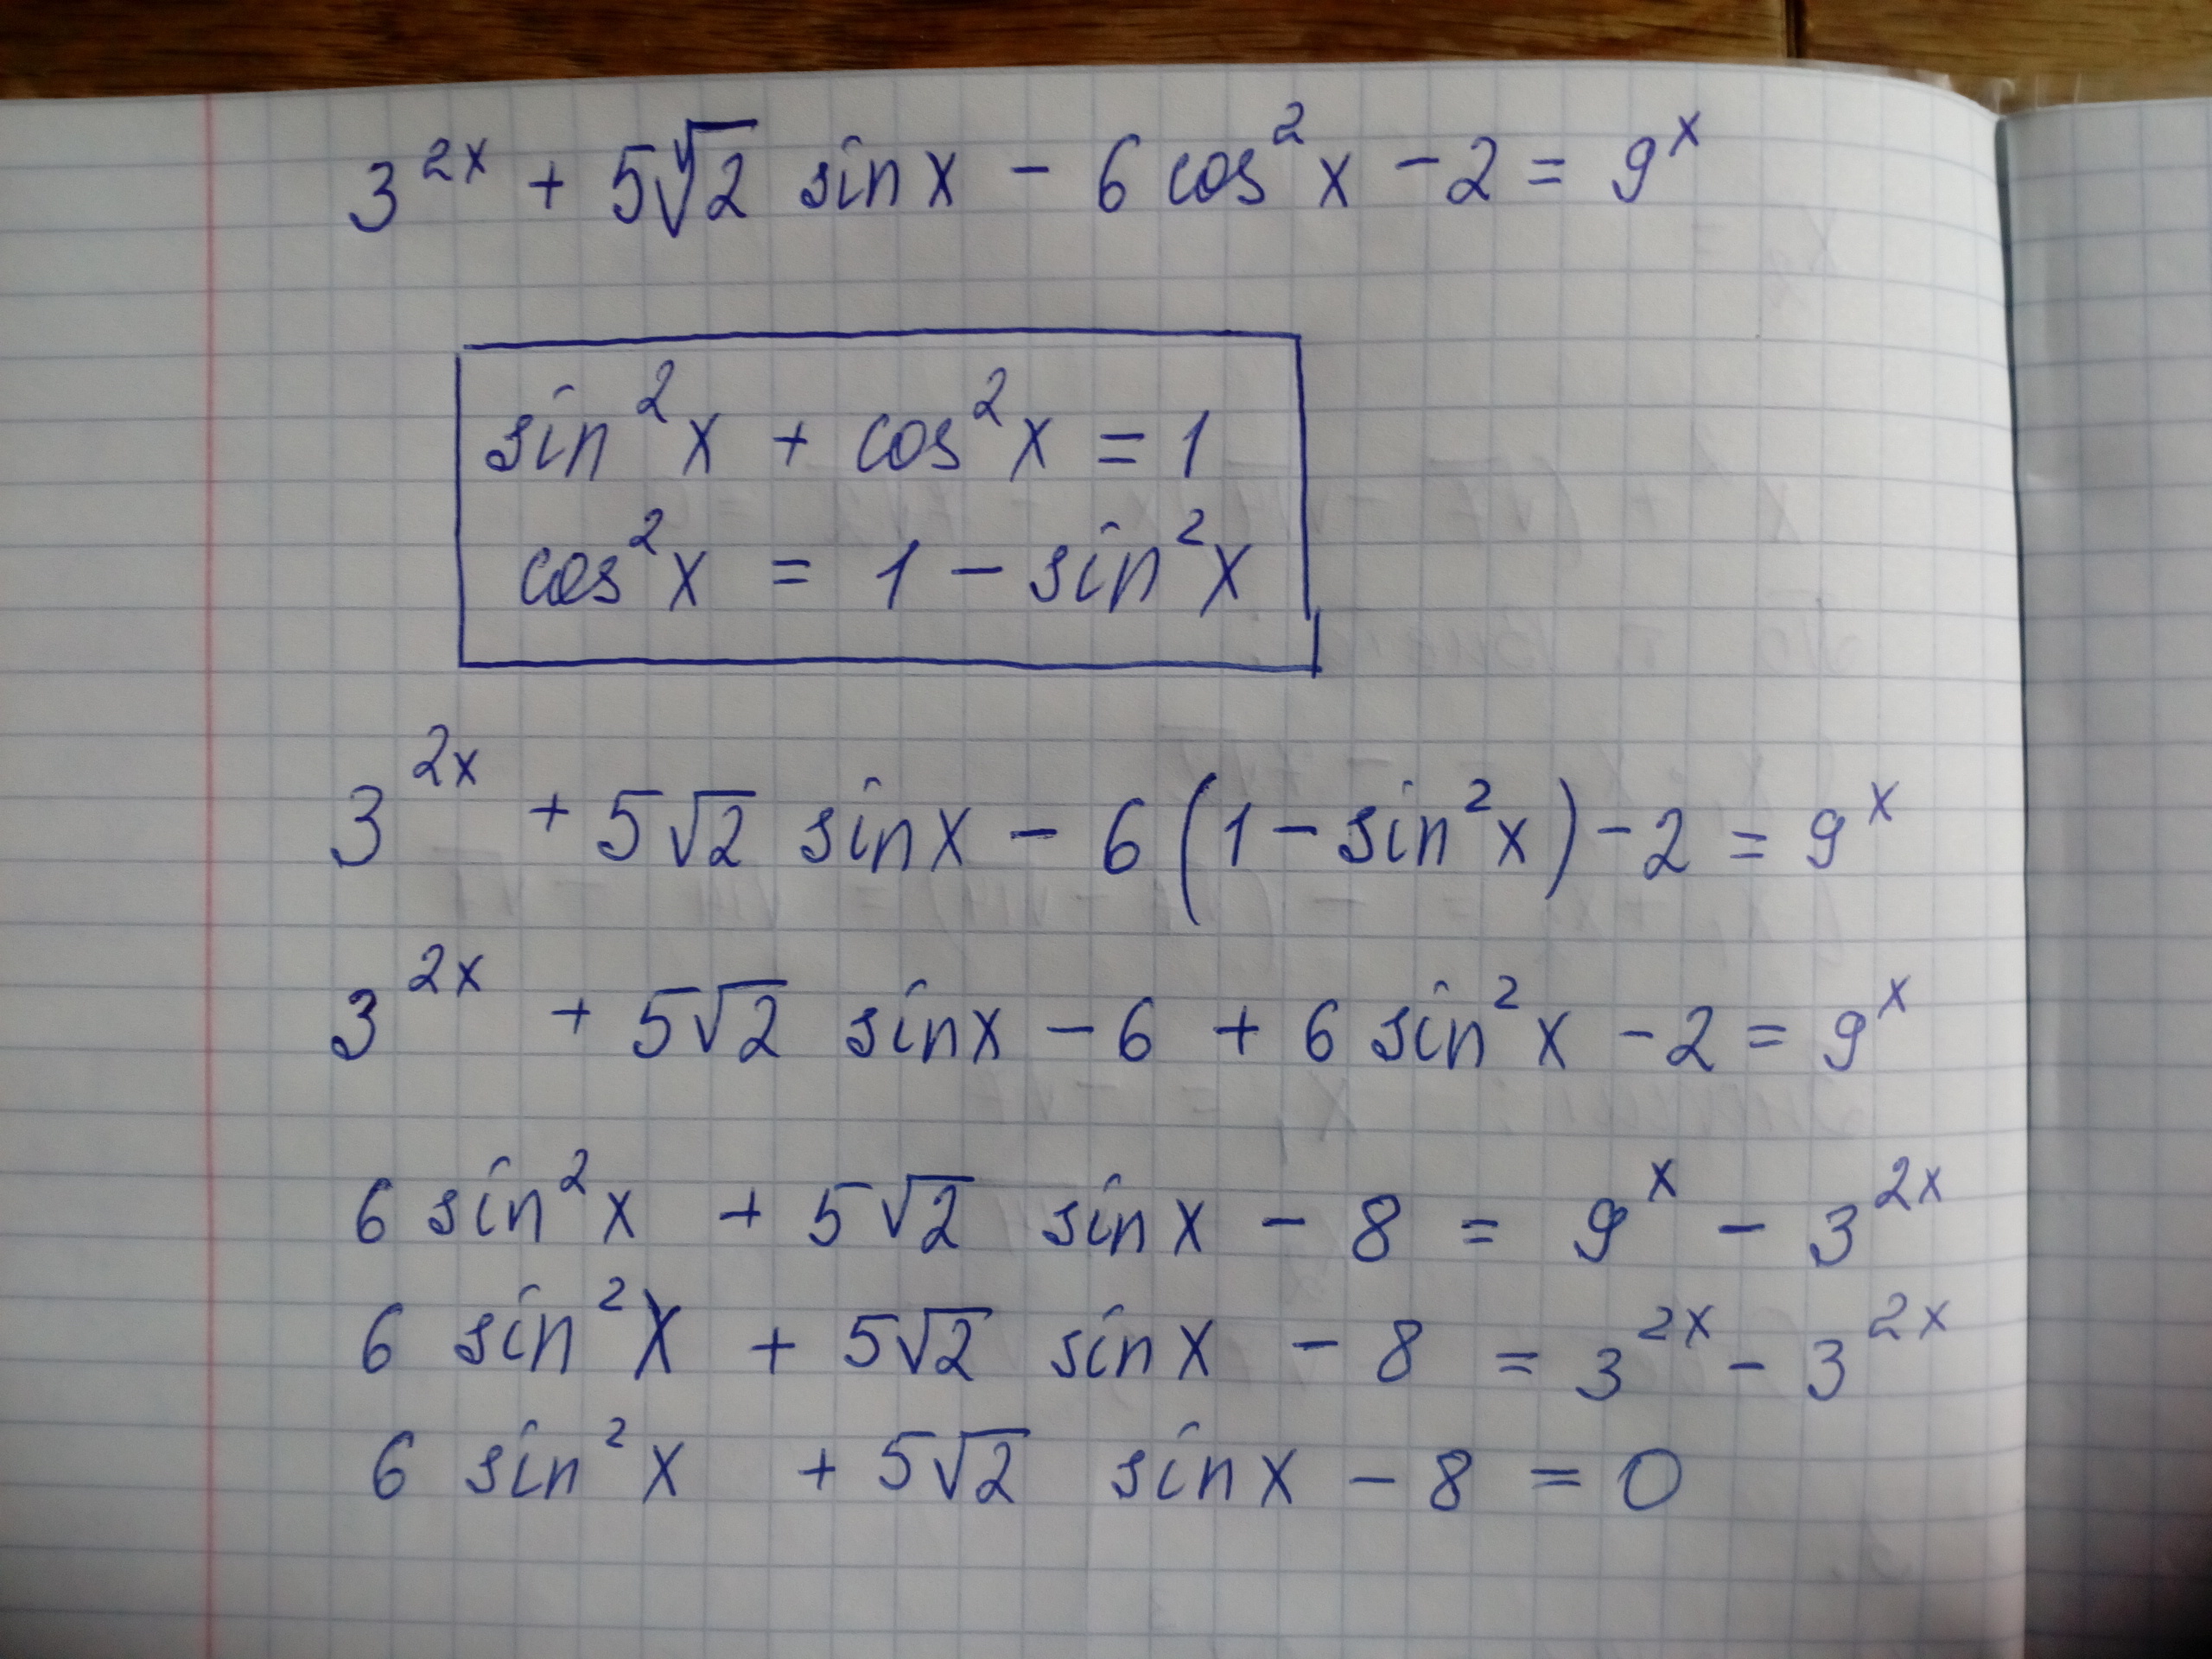 3^{2x} + 5√2 sin x - 6 cos²x - 2 = 9^x
sin²x + cos²x = 1
cos²x = 1 - sin²x
3^{2x} + 5√2 sin x - 6(1 - sin²x) - 2 = 9^x
3^{2x} + 5√2 sin x - 6 + 6 sin²x - 2 = 9^x
6 sin²x + 5√2 sin x - 8 = 9^x - 3^{2x}
6 sin²x + 5√2 sin x - 8 = 3^{2x} - 3^{2x}
6 sin²x + 5√2 sin x - 8 = 0